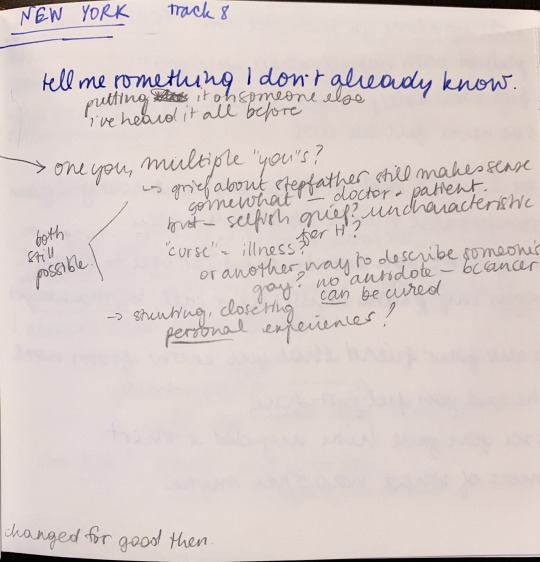 NEW YORK track 8
tell me something I don't already know.
putting it on someone else
i've heard it all before
→ one you, multiple "you"s?
↳ grief about stepfather still makes sense
somewhat — doctor - patient.
but — selfish grief? uncharacteristic
for H?
both
still
possible.
"curse" = illness?
or another way to describe someone's
gay? no antidote — bc cancer
can be cured
→ stunting, closeting
personal experiences?
changed for good then.